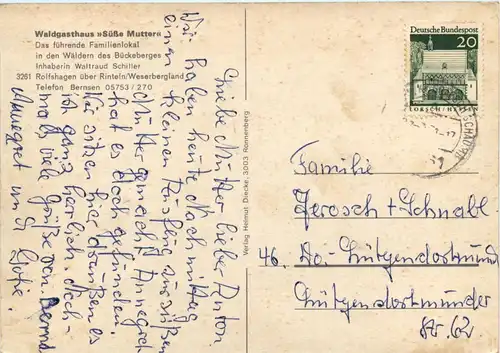 Waldgasthaus »Süße Mutter«
Das führende Familienlokal
in den Wäldern des Bückeberges
Inhaberin Waltraud Schiller
3261 Rolfshagen über Rinteln/Weserbergland
Telefon Bernsen 05753 / 270
Liebe Mutter, lieber Anton.
Wir haben heute Nachmittag
einen kleinen Ausflug zur süßen
Mutter gemacht. Annegret
hat es doch gefunden.
Wir sitzen hier draußen es
ist ganz herrlich. Noch-
mals viel Grüße von Bernd
Annegret und
Verlag Helmut Diecke, 3003 Ronnenberg
Deutsche Bundespost
20
LORSCH/HESSEN
Familie
Jerosch + Schnabl
46. Do.-Lütgendortmund
Lütgendortmunder
Str. 62